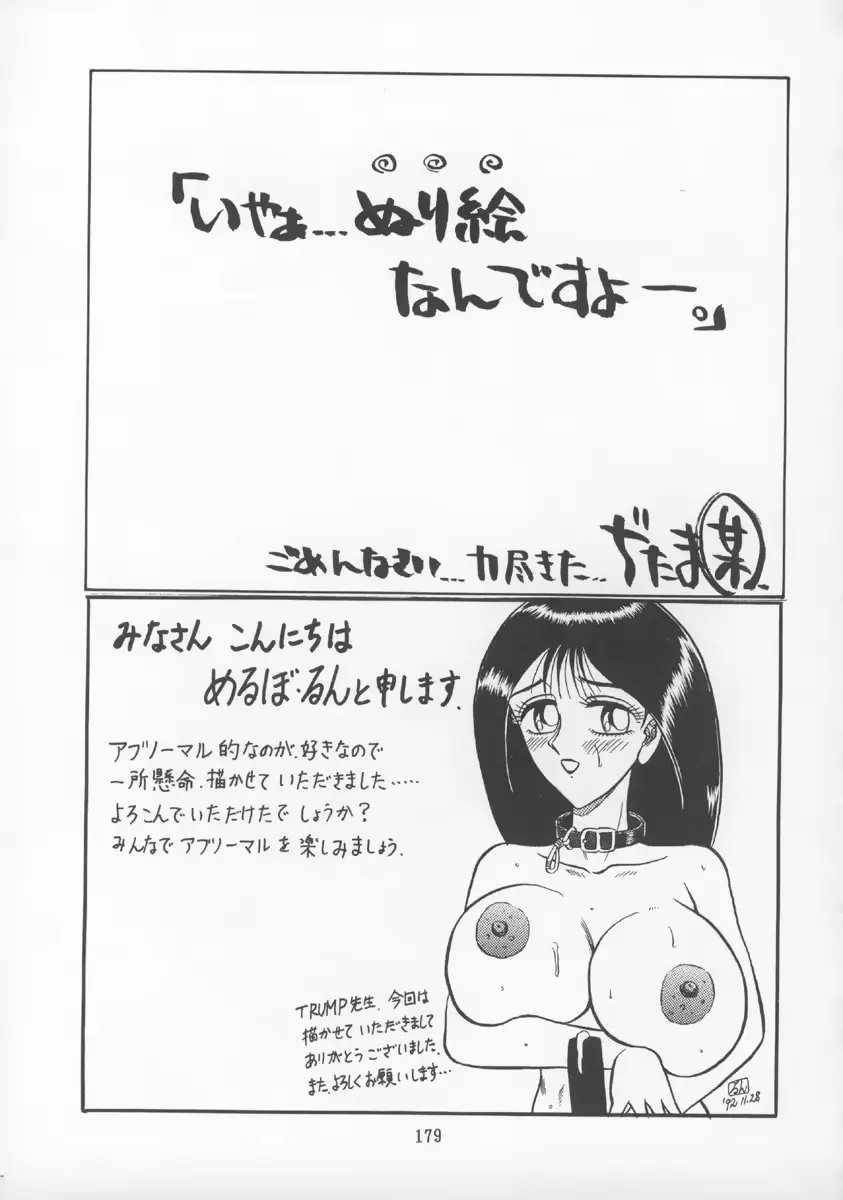 「いやぁ…ぬり絵
なんですよー。」
ごめんなさい…力尽きた‥ぢたま某
みなさん こんにちは
めるぼ・るんと申します.
アブノーマル的なのが、好きなので
一所懸命、描かせていただきました……
よろこんでいただけたでしょうか?
みんなで アブノーマル を 楽しみましょう.
TRUMP先生、今回は
描かせていただきまして
ありがとうございました.
また、よろしくお願いします…
るん
'92.11.28
179